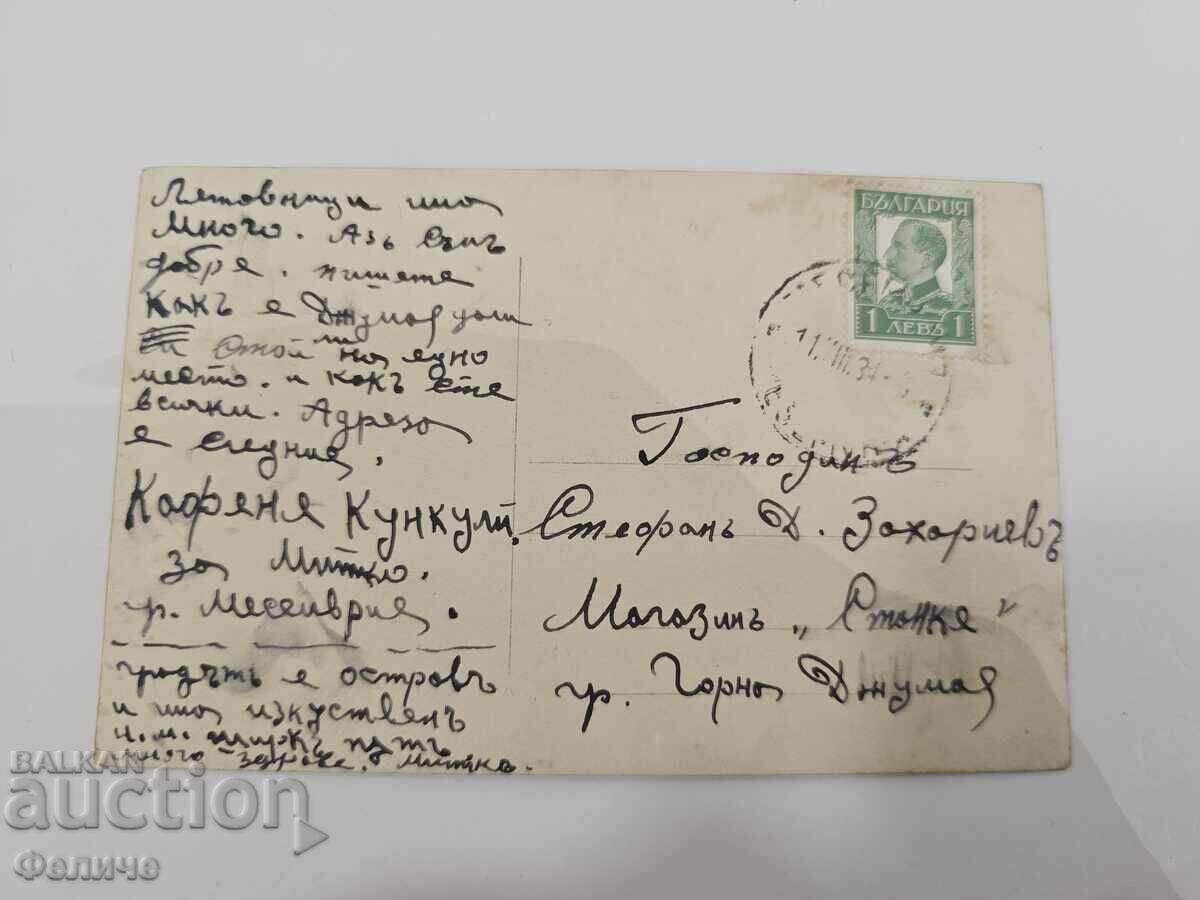 Лятовници има
много. Азъ съмъ
добре. пишете
какъ е Джумая дали
ли
си стои на едно
место. и какъ сте
всички. Адреса
е следния.
Кафяне Кункули.
за Митко.
гр. Месемврия.
градътъ е островъ
и има изкуственъ
пътъ
много здраве. Митко.
БЪЛГАРИЯ
1 ЛЕВЪ 1
11.VIII.34
Господинъ
Стефанъ Д. Захариевъ
Магазинъ „Станке"
гр. Горна Джумая
BALKAN
auction
Феличе